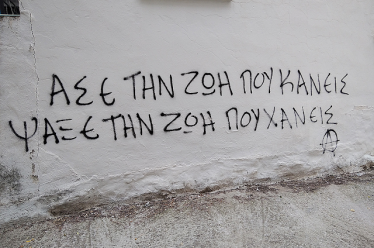 ΑΣΕ ΤΗΝ ΖΩΗ ΠΟΥ ΚΑΝΕΙΣ
ΨΑΞΕ ΤΗΝ ΖΩΗ ΠΟΥ ΧΑΝΕΙΣ